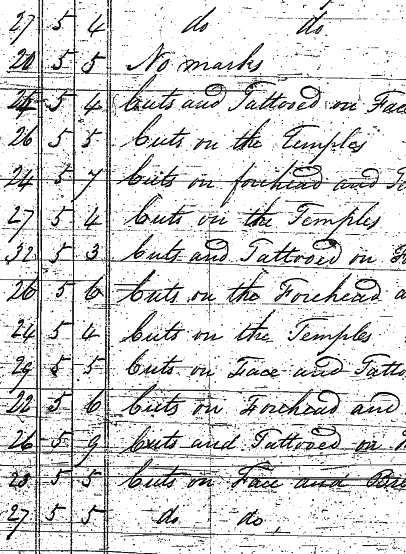 27 5 4 do do
20 5 5 No marks
24 5 4 Cuts and Tattooed on Face
26 5 5 Cuts on the Temples
24 5 7 Cuts on forehead and
27 5 4 Cuts on the Temples
32 5 3 Cuts and Tattooed on
26 5 6 Cuts on the Forehead
24 5 4 Cuts on the Temples
29 5 5 Cuts on Face and Tatto
22 5 6 Cuts on Forehead and
26 5 9 Cuts and Tattooed on
28 5 5 Cuts on Face and Bre
27 5 5 do do